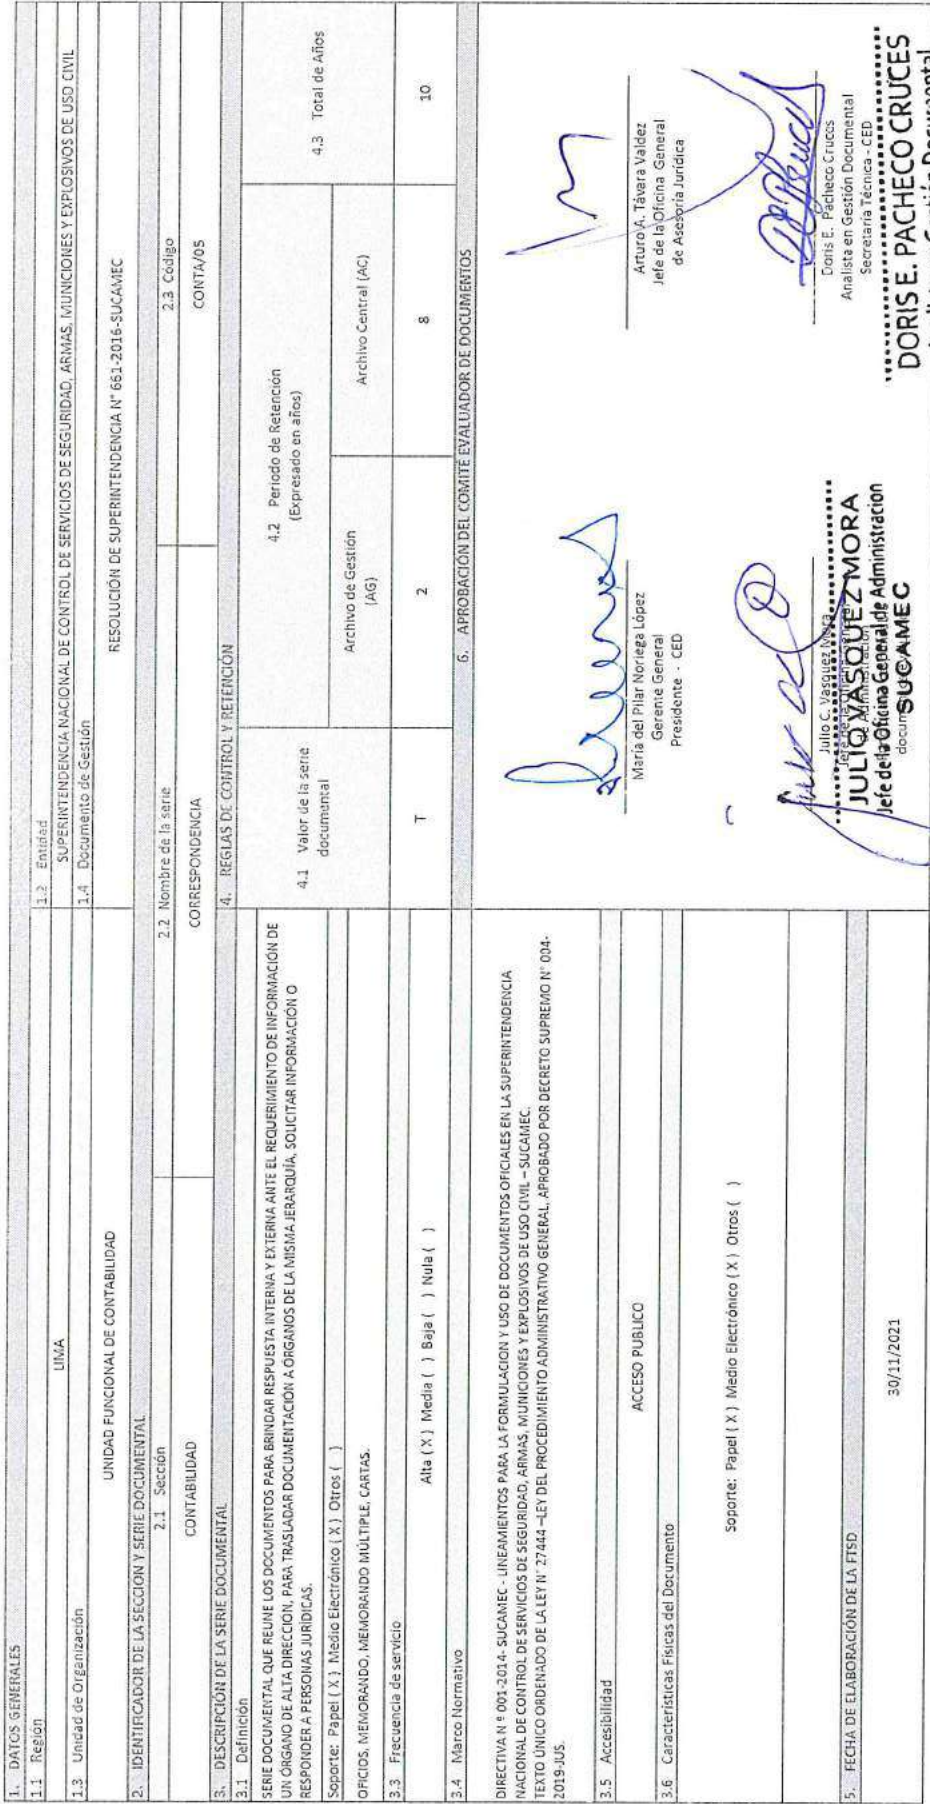 1. DATOS GENERALES
1.1 Región
LIMA
1.2 Entidad
SUPERINTENDENCIA NACIONAL DE CONTROL DE SERVICIOS DE SEGURIDAD, ARMAS, MUNICIONES Y EXPLOSIVOS DE USO CIVIL
1.3 Unidad de Organización
UNIDAD FUNCIONAL DE CONTABILIDAD
1.4 Documento de Gestión
RESOLUCIÓN DE SUPERINTENDENCIA N° 661-2016-SUCAMEC
2. IDENTIFICADOR DE LA SECCION Y SERIE DOCUMENTAL
2.1 Sección
2.2 Nombre de la serie
2.3 Código
CONTABILIDAD
CORRESPONDENCIA
CONTA/05
3. DESCRIPCIÓN DE LA SERIE DOCUMENTAL
3.1 Definición
SERIE DOCUMENTAL QUE REUNE LOS DOCUMENTOS PARA BRINDAR RESPUESTA INTERNA Y EXTERNA ANTE EL REQUERIMIENTO DE INFORMACIÓN DE
UN ÓRGANO DE ALTA DIRECCIÓN, PARA TRASLADAR DOCUMENTACIÓN A ÓRGANOS DE LA MISMA JERARQUÍA, SOLICITAR INFORMACIÓN O
RESPONDER A PERSONAS JURÍDICAS.
Soporte: Papel ( X ) Medio Electrónico ( X ) Otros ( )
OFICIOS, MEMORANDO, MEMORANDO MÚLTIPLE, CARTAS.
3.3 Frecuencia de servicio
Alta ( X ) Media ( ) Baja ( ) Nula ( )
3.4 Marco Normativo
DIRECTIVA N º 001-2014- SUCAMEC - LINEAMIENTOS PARA LA FORMULACION Y USO DE DOCUMENTOS OFICIALES EN LA SUPERINTENDENCIA
NACIONAL DE CONTROL DE SERVICIOS DE SEGURIDAD, ARMAS, MUNICIONES Y EXPLOSIVOS DE USO CIVIL – SUCAMEC.
TEXTO ÚNICO ORDENADO DE LA LEY N° 27444 –LEY DEL PROCEDIMIENTO ADMINISTRATIVO GENERAL, APROBADO POR DECRETO SUPREMO N° 004-
2019-JUS.
3.5 Accesibilidad
ACCESO PUBLICO
3.6 Características Físicas del Documento
Soporte: Papel ( X ) Medio Electrónico ( X ) Otros ( )
5. FECHA DE ELABORACIÓN DE LA FTSD
30/11/2021
4. REGLAS DE CONTROL Y RETENCIÓN
4.1 Valor de la serie
documental
4.2 Periodo de Retención
(Expresado en años)
4.3 Total de Años
Archivo de Gestión
(AG)
Archivo Central (AC)
T
2
8
10
6. APROBACIÓN DEL COMITE EVALUADOR DE DOCUMENTOS
María del Pilar Noriega López
Gerente General
Presidente - CED
Arturo A. Távara Valdez
Jefe de la Oficina General
de Asesoría Jurídica
Julio C. Vasquez Mora
JULIO VASQUEZ MORA
Jefe de la Oficina General de Administracion
SUCAMEC
Doris E. Pacheco Cruces
Analista en Gestión Documental
Secretaría Técnica - CED
DORIS E. PACHECO CRUCES